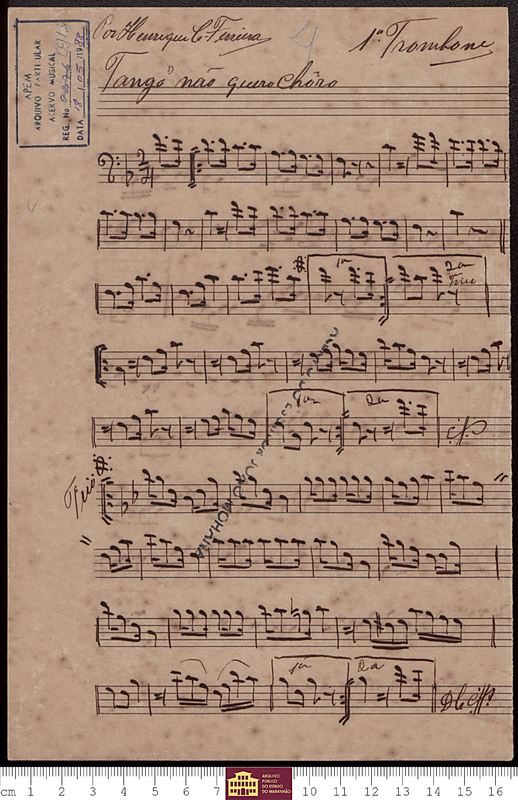 Por Henrique C. Ferreira
1º Trombone
Tango "não quero Chôro
APEM
ARQUIVO PARTICULAR
ACERVO MUSICAL
REG. No
DATA 18 / 05 / 1988
1a
2a
Trio
1a
2a
Trio
1a
2a
D.C.
cm 1 2 3 4 5 6 7 10 11 12 13 14 15 16
ARQUIVO
PÚBLICO
DO ESTADO
DO MARANHÃO